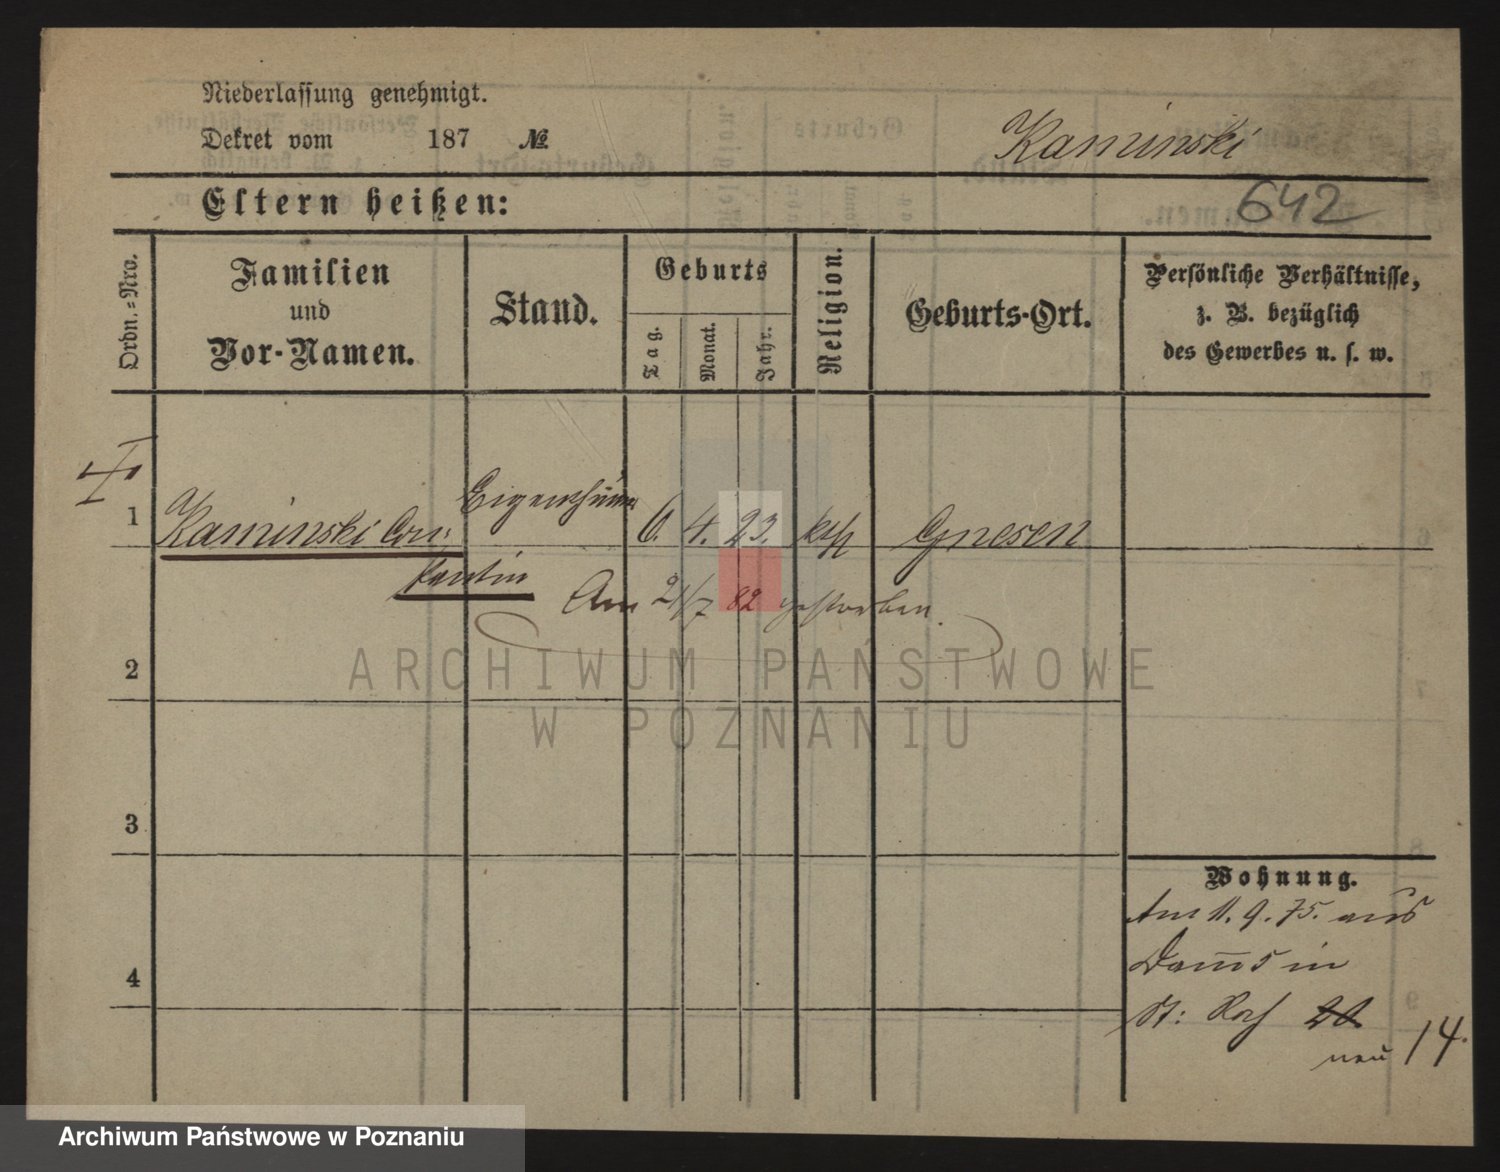 Niederlassung genehmigt.
Dekret vom 187 №
Kaminski
Eltern heißen:
642
Ordn.=Nro.
Familien
und
Vor-Namen.
Stand.
Geburts
Tag.
Monat.
Jahr.
Religion.
Geburts-Ort.
Persönliche Verhältnisse,
z. B. bezüglich
des Gewerbes u. s. w.
1
Kaminski Con:
stantin
Eigenthümer
6. 4. 23. kth Gnesen
Am 21/7 82 gestorben.
2
3
4
Wohnung.
Am 11. 9. 75. aus
Dam̅ 5 in
St: Roch 20
neu 14.
ARCHIWUM PAŃSTWOWE
W POZNANIU
Archiwum Państwowe w Poznaniu